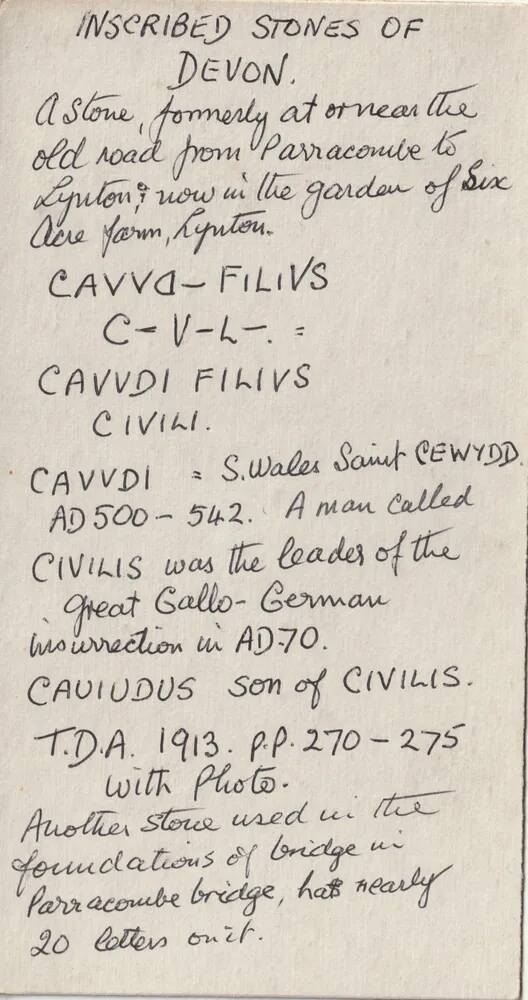 INSCRIBED STONES OF
DEVON.
A Stone, formerly at or near the
old road from Parracombe to
Lynton; now in the garden of Six
Acre farm, Lynton.
CAVVD– FILIVS
C– V–L–. =
CAVVDI FILIVS
CIVILI.
CAVVDI = S. Wales Saint CEWYDD.
AD 500 – 542. A man called
CIVILIS was the leader of the
great Gallo-German
insurrection in AD 70.
CAUIUDUS son of CIVILIS.
T.D.A. 1913. P.P. 270 – 275
with Photo.
Another stone used in the
foundations of bridge in
Parracombe bridge, has nearly
20 letters on it.